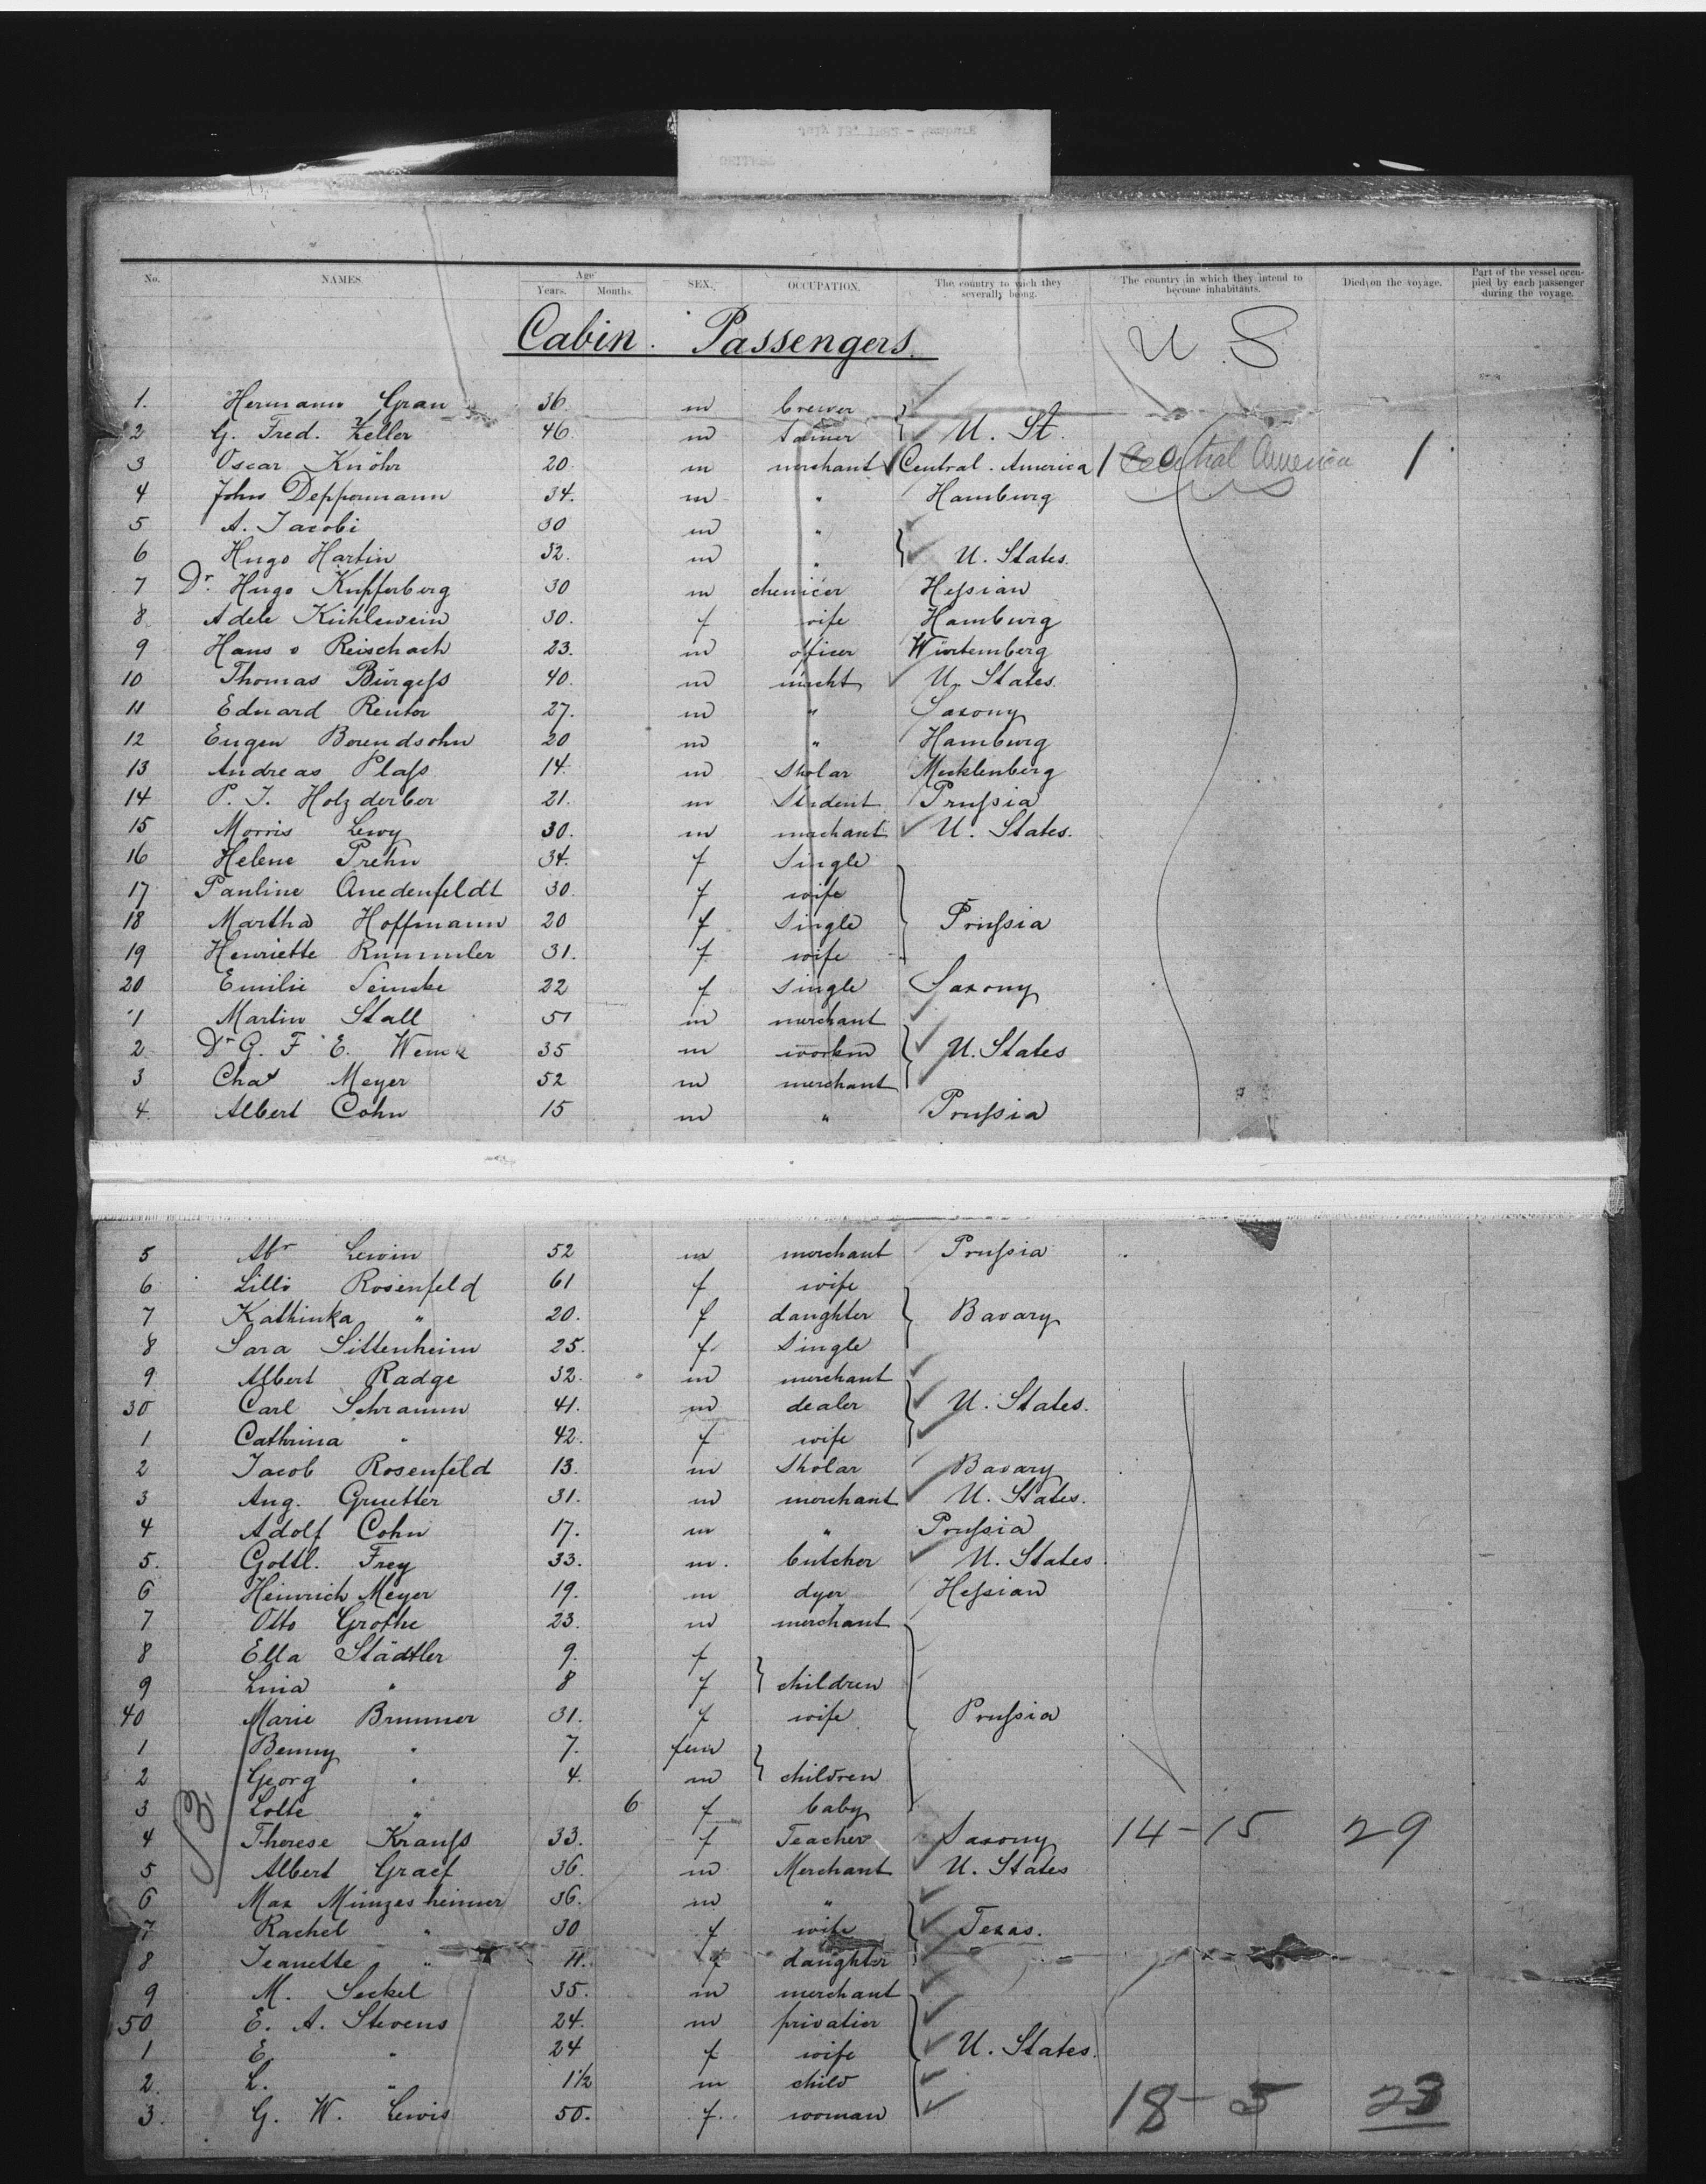 No. NAMES Age Years. Months. SEX. OCCUPATION. The country to wich they severally belong. The country in which they intend to become inhabitants. Died on the voyage. Part of the vessel occupied by each passenger during the voyage.
Cabin Passengers. U S
1. Hermann Grau 36. m brewer
2 G. Fred. Zeller 46. m U. St.
3 Oscar Knöhr 20 m merchant Central. America 1 Central America 1
4 John Deppermann 34. m " Hamburg
5 A. Jacobi 30 m "
6 Hugo Hartin 32. m " U. States.
7 Dr. Hugo Kupferberg 30 m Heſsian
8 Adele Kühlewein 30. f wife Hamburg
9 Hans v Reischach 23. m officer Würtemberg
10 Thomas Bürgeſs 40. m U. States.
11 Eduard Reuter 27. m " Saxony
12 Eugen Berendsohn 20 m " Hamburg
13 Andreas Plaſs 14. m Sholar Mecklenberg
14 P. J. Holzderber 21. m Student Pruſsia
15 Morris Lewy 30. m merchant U. States.
16 Helene Prehn 34. f Single
17 Pauline Quedenfeldt 30. f wife
18 Martha Hoffmann 20 f Single Pruſsia
19 Henriette Rummler 31. f. wife
20 Emilie 22 f Single Saxony
1 Martin Stall 51 m merchant
2 Dr G. F. E. 35 m U. States
3 Chas Meyer 52 m merchant
4. Albert Cohn 15 m " Pruſsia
5 Abr Lewin 52 m merchant Pruſsia
6 Lilli Rosenfeld 61 f wife
7 Kathinka " 20. f daughter Bavary
8 Sara Sittenheim 25. f Single
9 Albert Radge 32. m merchant
30 Carl Schramm 41. m dealer U. States.
1 Cathrina " 42. f wife
2 Jacob Rosenfeld 13. m Sholar Bavary
3 Aug. Gruetter 31. m merchant U. States.
4 Adolf Cohn 17. m " Pruſsia
5. Gottl. Frey 33. m. butcher U. States.
6 Heinrich Meyer 19. m dyer Heſsian
7 Otto Grothe 23. m merchant
8 Ella Städtler 9. f
9 Lina " 8 f children
40 Marie Brunner 31. f wife Pruſsia
1 Benny " 7. fem
2 Georg " 4. m children
3 Lotte " 6 f baby
4 Therese Krauſs 33. f Teacher Saxony 14-15 29
5 Albert Graef 36. m Merchant U. States
6 Max Münzesheimer 36. m "
7 Rachel " 30 f wife Texas.
8 Jeanette " 11. f daughter
9 M. Seckel 35. m merchant
50 E. A. Stevens 24. m privatier
1 E. " 24 f wife U. States.
2. L. " 1½ m child
3. G. W. Lewis 50. f. woman 18-5 23